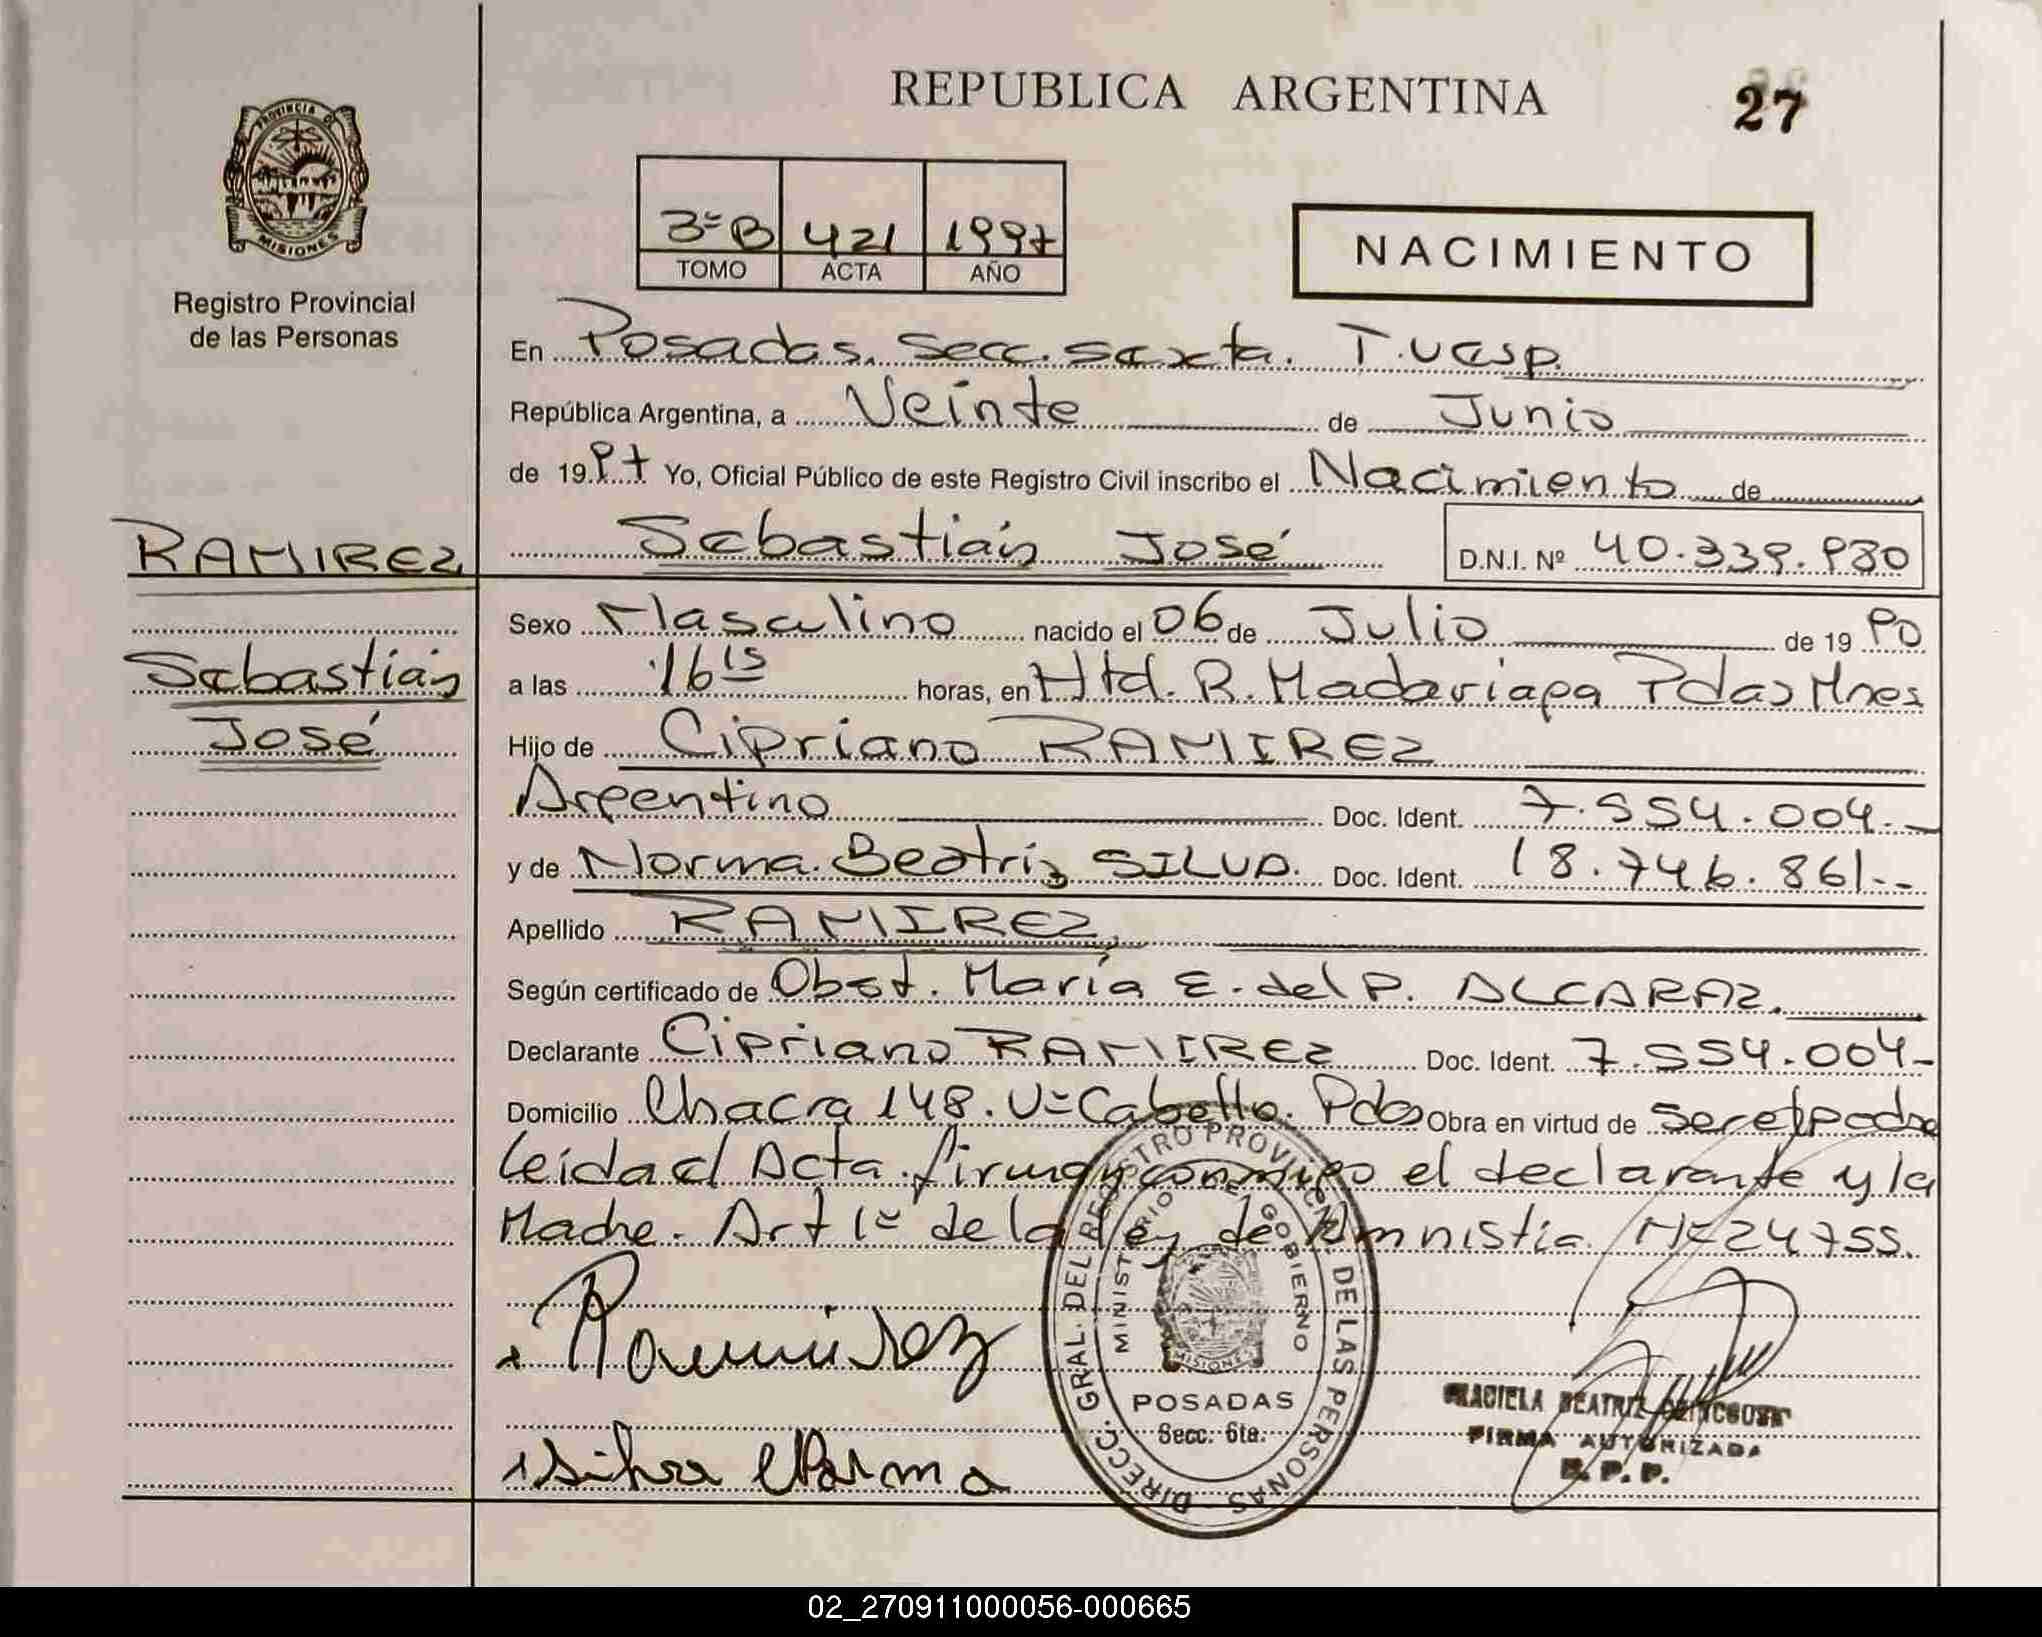 REPUBLICA ARGENTINA
27
PROVINCIA DE
MISIONES
Registro Provincial
de las Personas
3º B 421 1997
TOMO ACTA AÑO
NACIMIENTO
En Posadas. Secc. sexta.
República Argentina, a Veinte de Junio
de 1997 Yo, Oficial Público de este Registro Civil inscribo el Nacimiento de
RAMIREZ
Sebastián José D.N.I. Nº 40.339.980
Sexo Masculino nacido el 06 de Julio de 19 90
Sebastián
a las 16 15 horas, en Htd. R. Madariaga Pdas Mnes
José
Hijo de Cipriano RAMIREZ
Argentino Doc. Ident. 7.554.004.-
y de Norma Beatriz SILVA. Doc. Ident. 18.746.861.-
Apellido RAMIREZ
Según certificado de Obst. María E. del P. ALCARAZ.
Declarante Cipriano RAMIREZ Doc. Ident. 7.554.004-
Domicilio Chacra 148. Vº Cabello. Pdas Obra en virtud de ser el padre
Leida el Acta. firman conmigo el declarante y la
Madre. Art 1º de la Ley de Amnistia Nº 24755.
Ramirez
Silva Norma
DIRECC. GRAL. DEL REGISTRO PROVINCIAL DE LAS PERSONAS
MINISTERIO DE GOBIERNO
MISIONES
POSADAS
Secc. 6ta.
GRACIELA BEATRIZ
FIRMA AUTORIZADA
R. P. P.
02_270911000056-000665